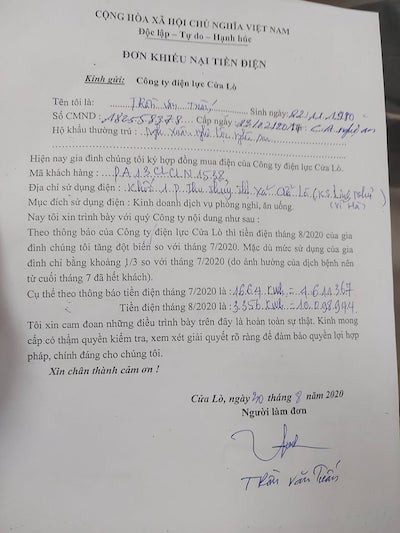 CỘNG HÒA XÃ HỘI CHỦ NGHĨA VIỆT NAM
Độc lập – Tự do – Hạnh húc
ĐƠN KHIẾU NẠI TIỀN ĐIỆN
Kính gửi: Công ty điện lực Cửa Lò
Tên tôi là: Trần Văn Tuấn Sinh ngày 02.11.1980
Số CMND : Cấp ngày
Hộ khẩu thường trú :
Hiện nay gia đình chúng tôi ký hợp đồng mua điện của Công ty điện lực Cửa Lò.
Mã khách hàng :
Địa chỉ sử dụng điện : Khối 1. P. Thu Thuỷ
Mục đích sử dụng điện : Kinh doanh dịch vụ phòng nghỉ, ăn uống.
Nay tôi xin trình bày với quý Công ty nội dung như sau :
Theo thông báo của Công ty điện lực Cửa Lò thì tiền điện tháng 8/2020 của gia
đình chúng tôi tăng đột biến so với tháng 7/2020. Mặc dù mức sử dụng của gia
đình chỉ bằng khoảng 1/3 so với tháng 7/2020 (do ảnh hưởng của dịch bệnh nên
từ cuối tháng 7 đã hết khách).
Cụ thể theo thông báo tiền điện tháng 7/2020 là : 1664 kwh = 4.611367
Tiền điện tháng 8/2020 là : 3.356 kwh = 10.098.944
Tôi xin cam đoan những điều trình bày trên đây là hoàn toàn sự thật. Kính mong
cấp có thẩm quyền kiểm tra, xem xét giải quyết rõ ràng để đảm bảo quyền lợi hợp
pháp, chính đáng cho chúng tôi.
Xin chân thành cảm ơn !
Cửa Lò, ngày 30 tháng 8 năm 2020
Người làm đơn
Trần Văn Tuấn